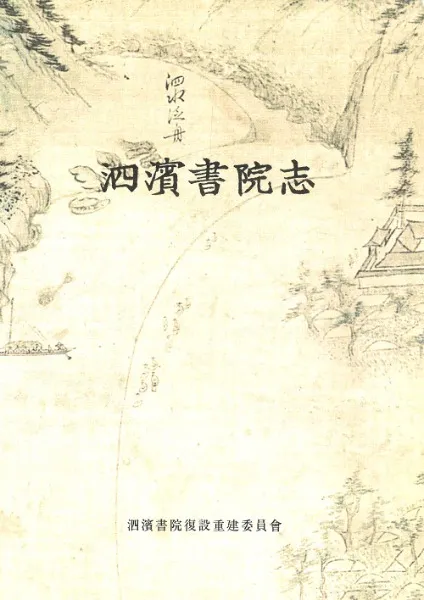 泗水泛舟
泗濱書院志
泗濱書院復設重建委員會